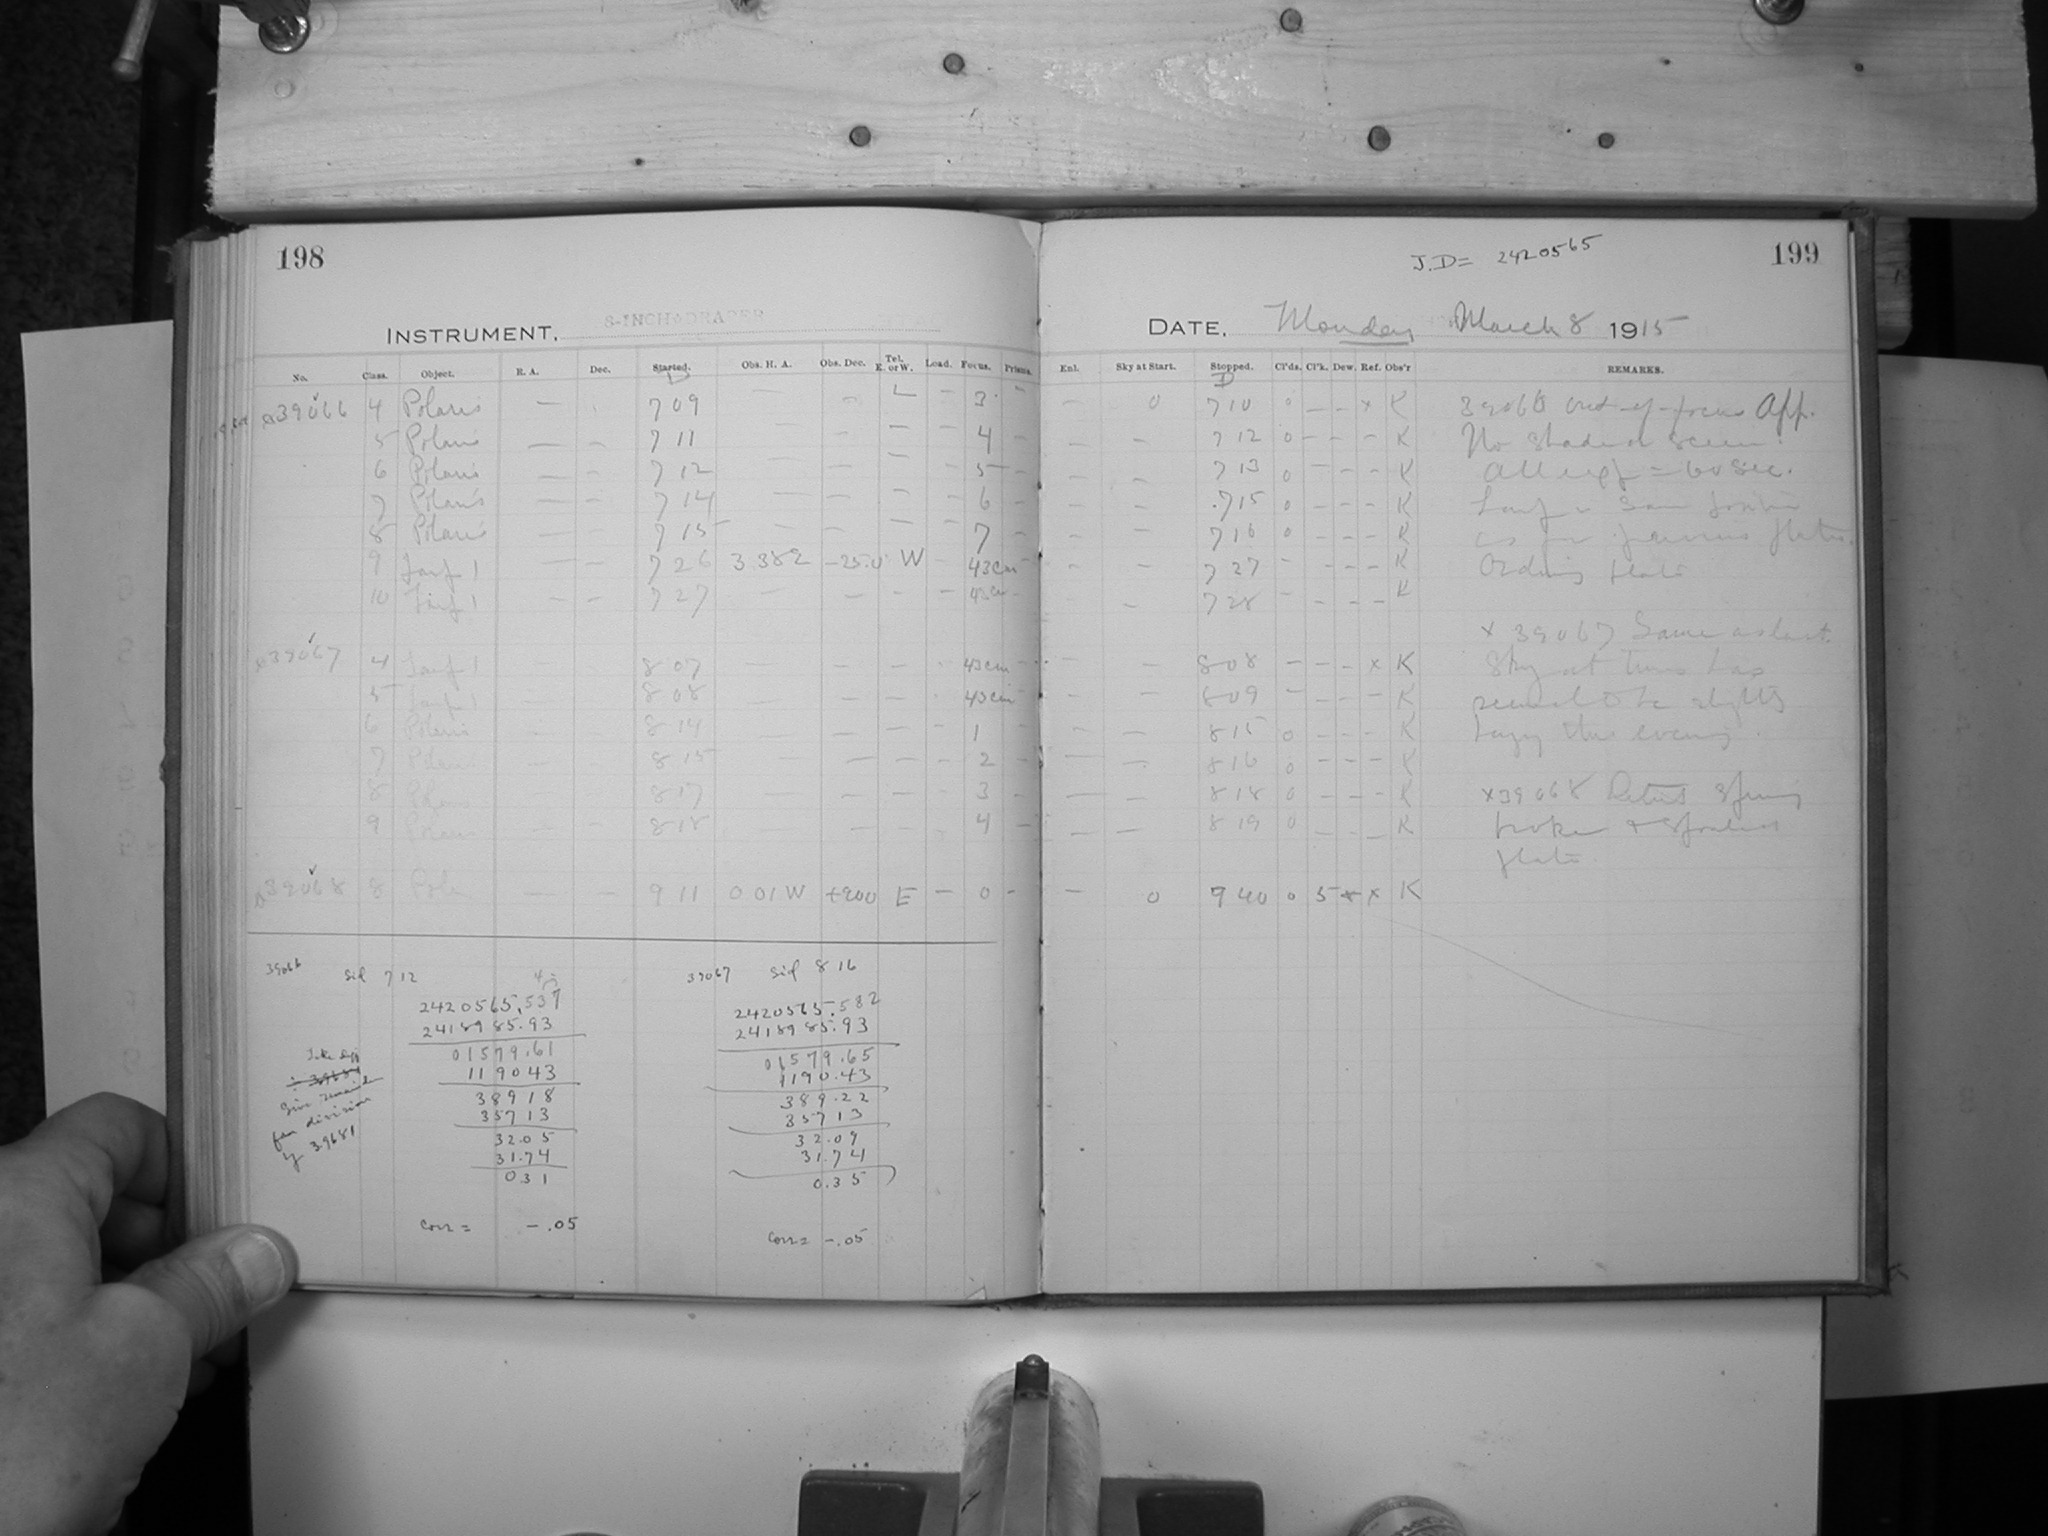 198
INSTRUMENT, 8-INCH DRAPER
No. Class. Object. R. A. Dec. Started. Obs. H. A. Obs. Dec. Tel. E. or W. Load. Focus. Prisms.
39066 4 Polaris — 7 09 — L — 3
5 Polaris — — 7 11 — — 4 —
6 Polaris — — 7 12 — — 5 —
7 Polaris — — 7 14 — — — — 6 —
8 Polaris — — 7 15 — — — — 7 —
9 — — 7 26 3.382 -25.0 W — 43cm
10 — — 7 27 — — — — 43cm
39067 4 — — 8 07 — — — 43cm —
5 — — 8 08 — — — 43cm
6 Polaris — — 8 14 — — — 1
7 — — 8 15 — — — — 2 —
8 — — 8 17 — — — — 3 —
9 — — 8 18 — — — — 4 —
39068 8 — — 9 11 0 01 W +900 E — 0 -
39066 Sid 7 12
2420565.537
2418985.93
01579.61
119043
38918
35713
32.05
31.74
031
Corr = -.05
39681
39067 Sid 8 16
2420565.582
2418985.93
01579.65
1190.43
389.22
35713
32.09
31.74
0.35
Corr = -.05
J.D = 2420565
199
DATE, Monday March 8 1915
Enl. Sky at Start. Stopped. Cl'ds. Cl'k. Dew. Ref. Obs'r REMARKS.
— 0 7 10 0 — — x K 39066 out of focus App.
— — 7 12 0 — — — K No shade or screen.
— — 7 13 0 — — — K All exp = 60 sec.
— — 7 15 0 — — — K
— — 7 16 0 — — — K as for previous plates.
— — 7 27 — — — — K Ordinary plate
— 7 28 — — — K
x 39067 Same as last.
— — 8 08 — — — x K Sky at times has
— — 8 09 — — — K seemed to be slightly
— — 8 15 0 — — — K hazy this evening.
— — 8 16 0 — — — K
— — 8 18 0 — — — K x39068 Spring
— — 8 19 0 — — — K broken +
plate
— 0 9 40 0 5 x x K